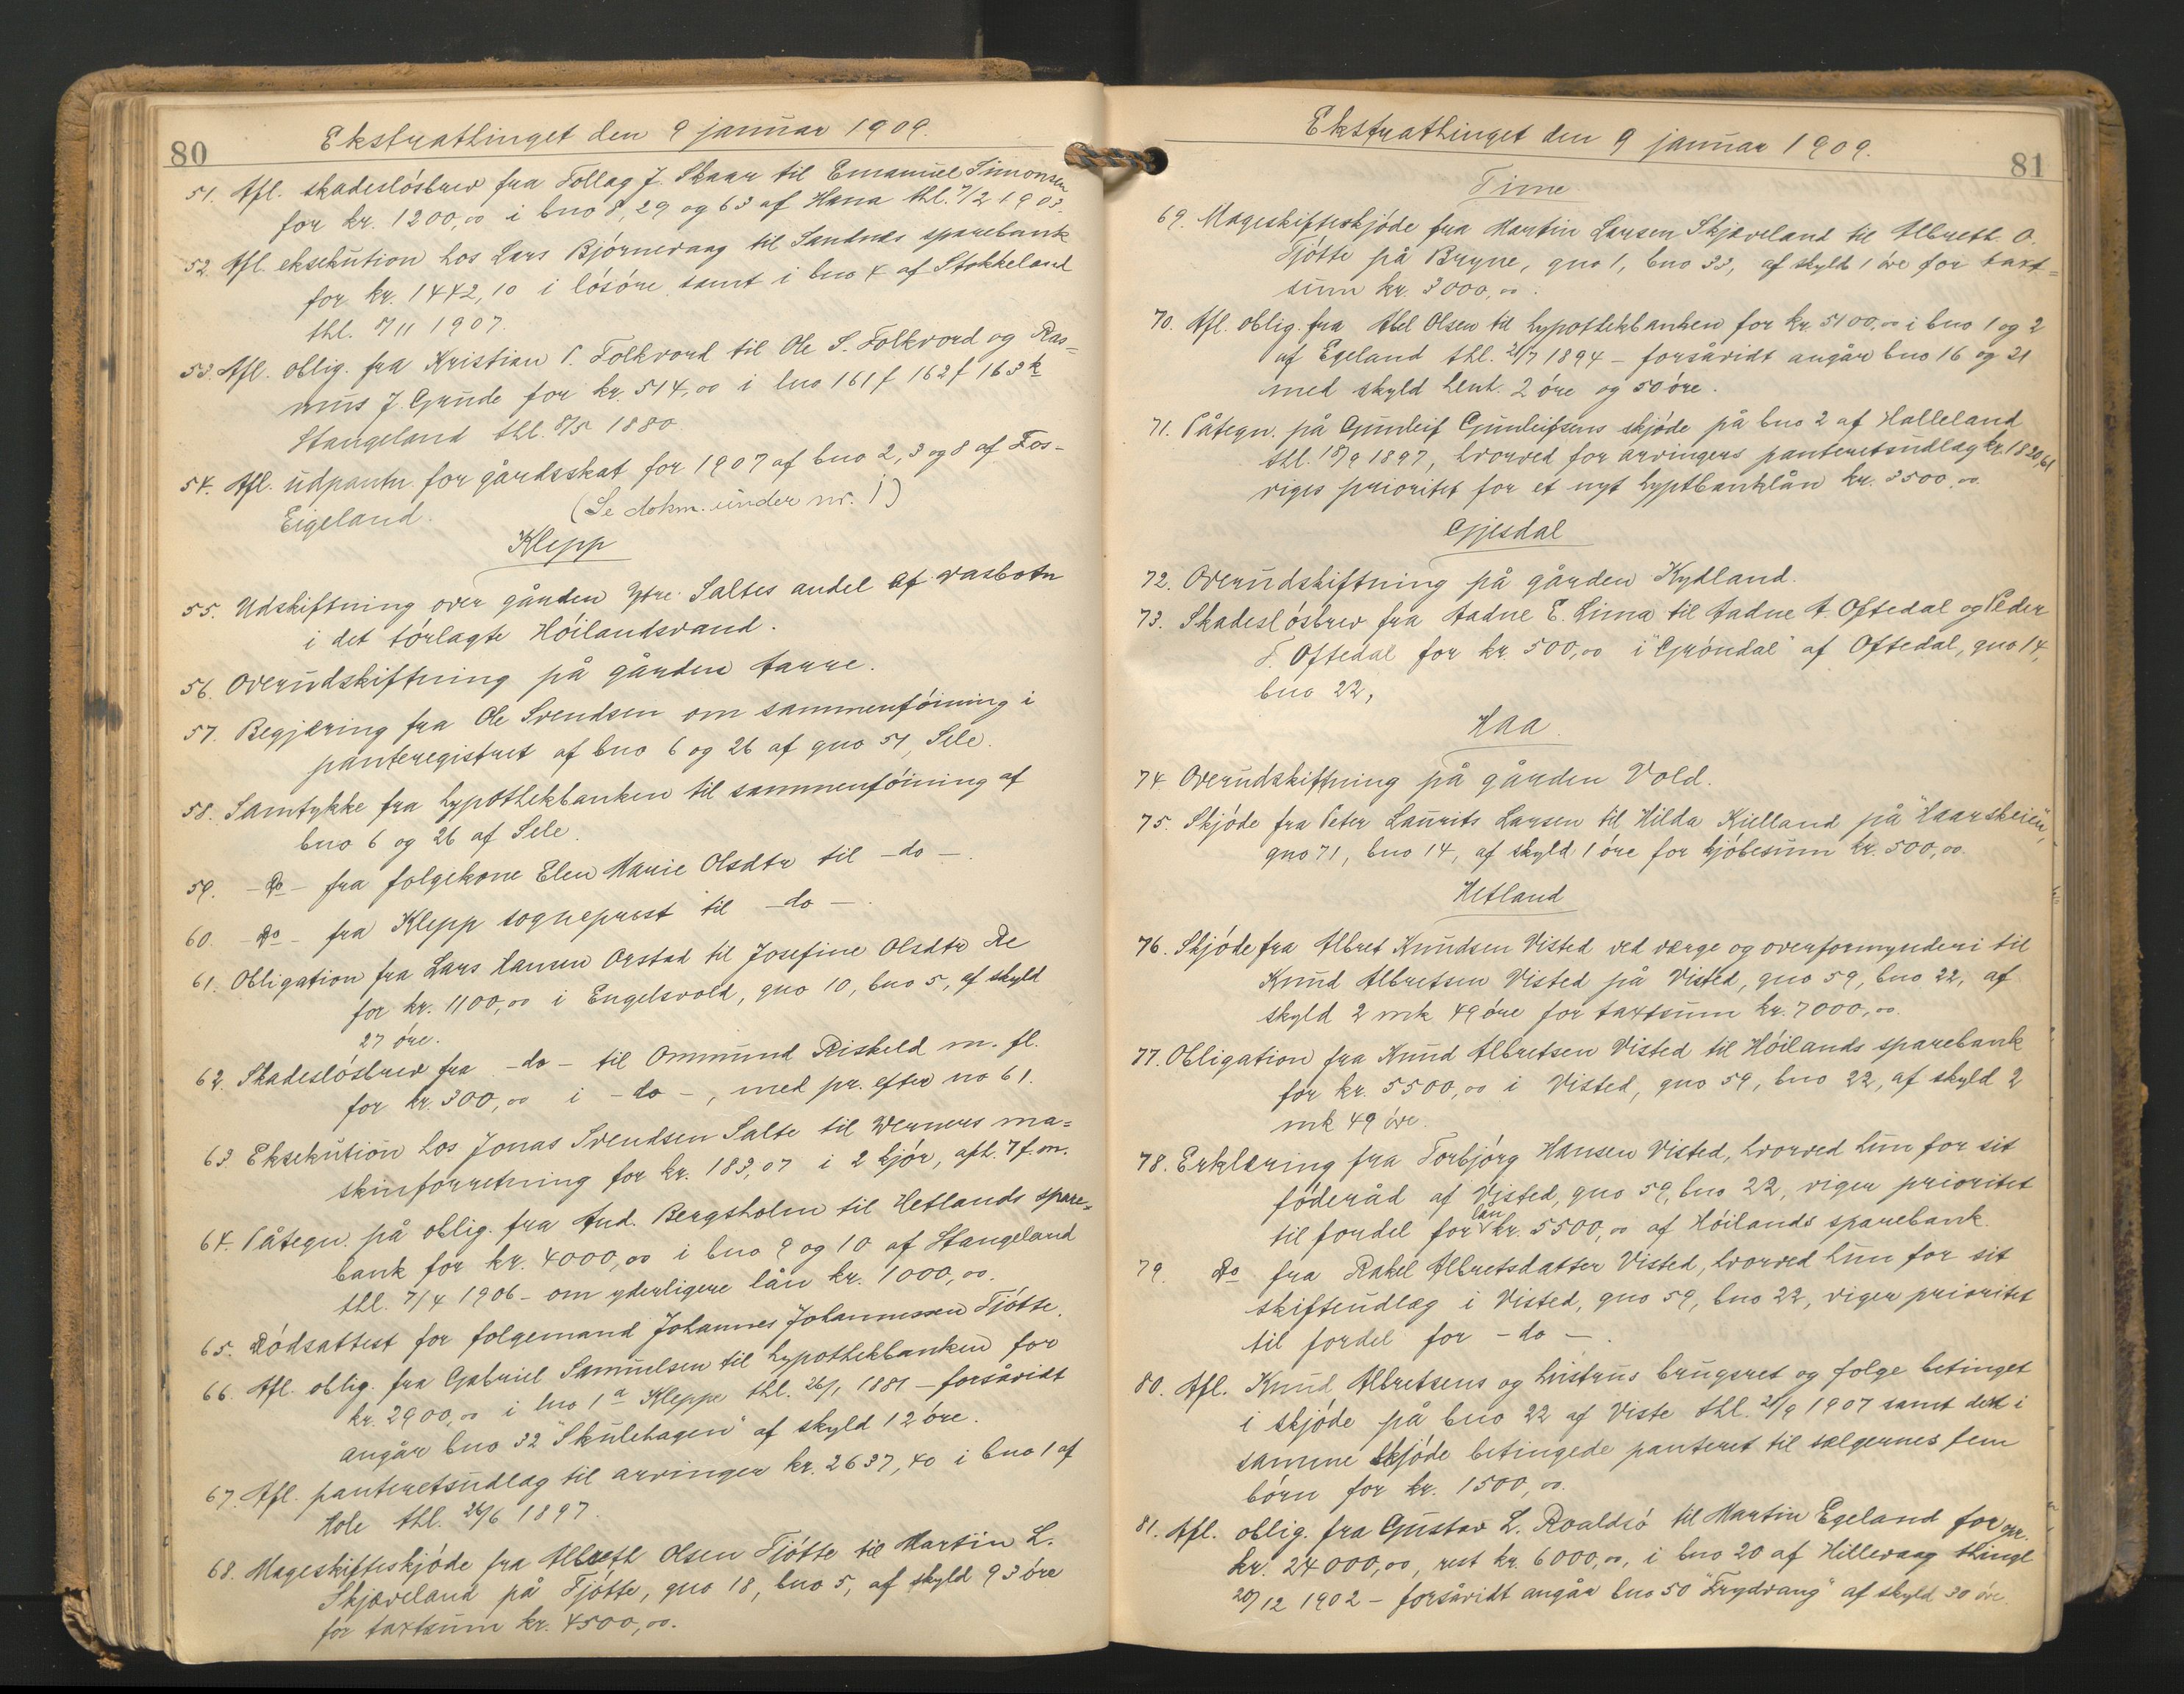 80
Ekstrathinget den 9 januar 1909.
51. Afl. skadesløsbrev fra Tollag J. Skaar til Emanuel Simonsen
for kr. 1200,00 i bno 8, 29 og 63 af Hana thl. 7/2 1903.
52. Afl. eksekution hos Lars Bjørnevaag til Sandnes sparebank
for kr. 1442,10 i løsøre samt i bno 4 af Stokkeland
thl. 8/11 1907.
53. Afl. oblig. fra Kristian P. Folkvord til Ole S. Folkvord og Ras=
mus J. Grude for kr. 514,00 i bno 161f 162f 163k
Stangeland thl. 8/5 1880
54. Afl. udpantn. for gårdsskat for 1907 af bno 2, 3 og 8 af Fos-
Eigeland. (Se dokm. under nr. 1)
Klepp
55. Udskiftning over gården Ytre Saltes andel af vasbotn
i det tørlagte Høilandsvand.
56. Overudskiftning på gården Aarre.
57. Begjæring fra Ole Svendsen om sammenføining i
panteregistret af bno 6 og 26 af gno 51, Sele.
58. Samtykke fra hypothekbanken til sammenføining af
bno 6 og 26 af Sele.
59. -Do- fra folgekone Elen Marie Olsdtr til -do-.
60. -Do- fra Klepp sogneprest til -do-.
61. Obligation fra Lars Hansen Orstad til Josefine Olsdtr Re
for kr. 1100,00 i Engelsvold, gno 10, bno 5, af skyld
27 øre.
62. Skadesløsbrev fra -do- til Ommund Riskeld m. fl.
for kr. 300,00 i -do-, med pr. efter no 61.
63. Eksekution hos Jonas Svendsen Salte til Werners ma=
skinforretning for kr. 183,07 i 2 kjør, afh. 7 f. m.
64. Påtegn. på oblig. fra And. Bergsholm til Hetlands spare=
bank for kr. 4000,00 i bno 9 og 10 af Stangeland
thl. 7/4 1906 - om yderligere lån kr. 1000,00.
65. Dødsattest for folgemand Johannes Johannessen Tjøtte.
66. Afl. oblig. fra Gabriel Samuelsen til hypothekbanken for
kr. 2900,00 i bno 1a Kleppe thl. 26/1 1881 - forsåvidt
angår bno 32 "Skulehagen" af skyld 12 øre.
67. Afl. panteretsudlag til arvinger kr. 2637,40 i bno 1 af
Hole thl. 26/6 1897.
68. Mageskifteskjøde fra Albreth Olsen Tjøtte til Martin L.
Skjæveland på Tjøtte, gno 18, bno 5, af skyld 93 øre
for taxtsum kr. 4500,00.
Ekstrathinget den 9 januar 1909.
81
Time
69. Mageskifteskjøde fra Martin Larsen Skjæveland til Albreth O.
Tjøtte på Bryne, gno 1, bno 33, af skyld 1 øre for taxt=
sum kr. 3000,00.
70. Afl. oblig. fra Abel Olsen til hypothekbanken for kr. 5100,00 i bno 1 og 2
af Egeland thl. 21/7 1894 - forsåvidt angår bno 16 og 21
med skyld henh. 2 øre og 50 øre.
71. Påtegn. på Gunleif Gunleifsens skjøde på bno 2 af Halleland
thl. 18/9 1897, hvorved for arvingers panteretsudlag kr. 1820,61
viges prioritet for et nyt hyptbanklån kr. 3500,00.
Gjesdal
72. Overudskiftning på gården Kydland.
73. Skadesløsbrev fra Aadne E. Lima til Aadne A. Oftedal og Peder
T. Oftedal for kr. 500,00 i "Grøndal" af Oftedal, gno 14,
bno 22,
Haa.
74. Overudskiftning på gården Vold.
75. Skjøde fra Peter Laurits Larsen til Hilda Kielland på "Haarsheien",
gno 71, bno 14, af skyld 1 øre for kjøbesum kr. 500,00.
Hetland
76. Skjøde fra Albret Knudsen Visted ved værge og overformynderi til
Knud Albretsen Visted på Visted, gno 59, bno 22, af
skyld 2 mk 49 øre for taxtsum kr. 7000,00.
77. Obligation fra Knud Albretsen Visted til Høilands sparebank
for kr. 5500,00 i Visted, gno 59, bno 22, af skyld 2
mk 49 øre.
78. Erklæring fra Torbjørg Hansen Visted, hvorved hun for sit
føderåd af Visted, gno 59, bno 22, viger prioritet
til fordel for lån kr. 5500,00 af Høilands sparebank.
79. Do fra Rakel Albretsdatter Visted, hvorved hun for sit
skifteudlæg i Visted, gno 59, bno 22, viger prioritet
til fordel for -do-.
80. Afl. Knud Albretsens og hustrus brugsret og folge betinget
i skjøde på bno 22 af Viste thl. 21/9 1907 samt det i
samme skjøde betingede panteret til sælgernes fem
børn for kr. 1500,00.
81. Afl. oblig. fra Gustav L. Roaldsø til Martin Egeland for opr.
kr. 24000,00, rest kr. 6000,00, i bno 20 af Hillevaag thingl
20/12 1902 - forsåvidt angår bno 50 "Frydvang" af skyld 30 øre.